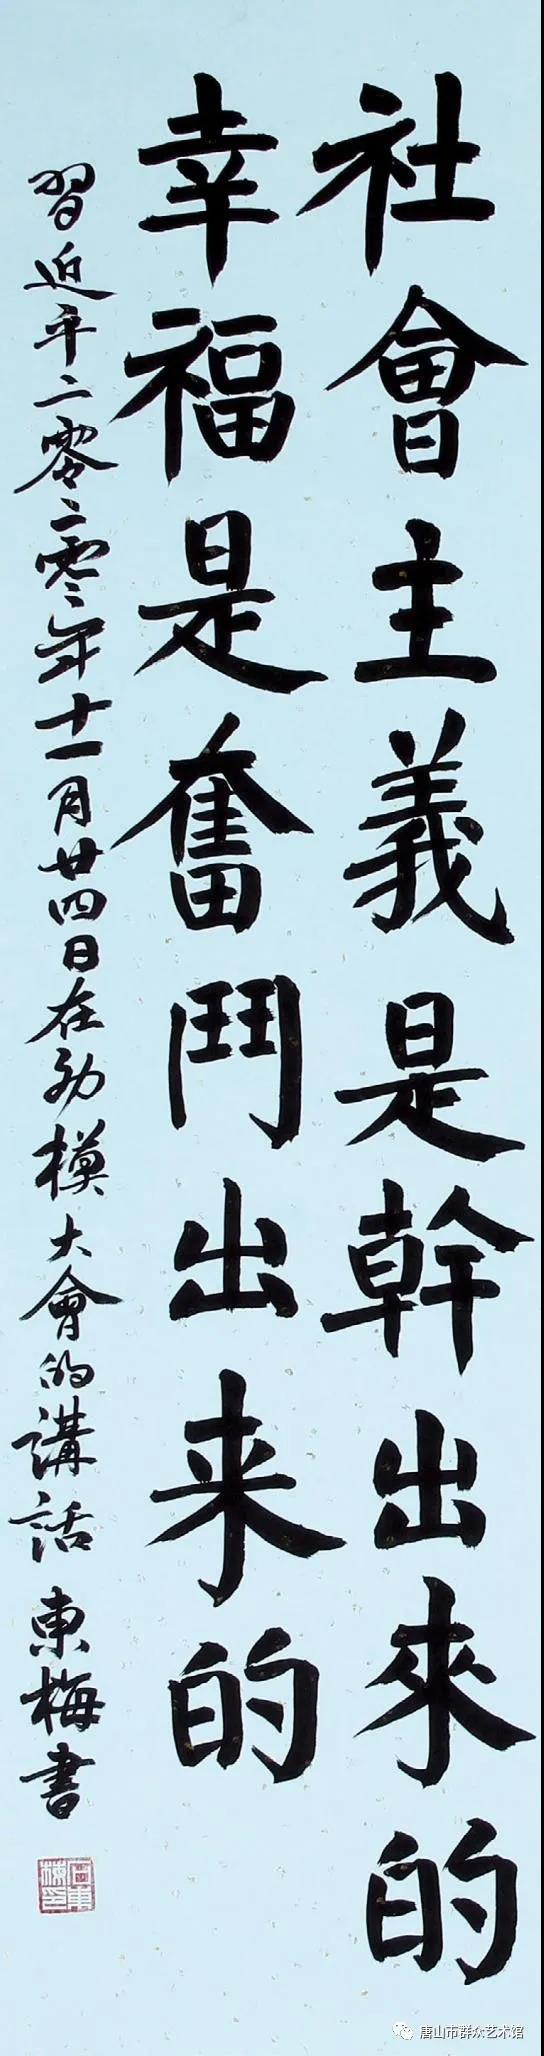 社會主義是幹出來的
幸福是奮鬥出来的
習近平二零二零年十一月廿四日在劳模大會的講話 東梅書
唐山市群众艺术馆